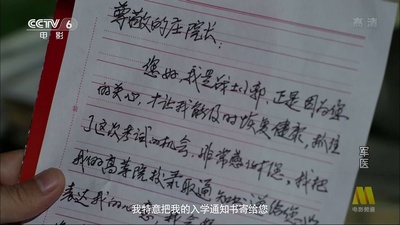 CCTV 6
电影
高清
尊敬的庄院长：
您好，我是战士小郭，正是因为您
的关心，才让我能及时恢复健康，抓住
了这次考试的机会，非常感谢您，我把
我的高等院校录取通知
表达我的心意，我
我特意把我的入学通知书寄给您
军医
电影频道